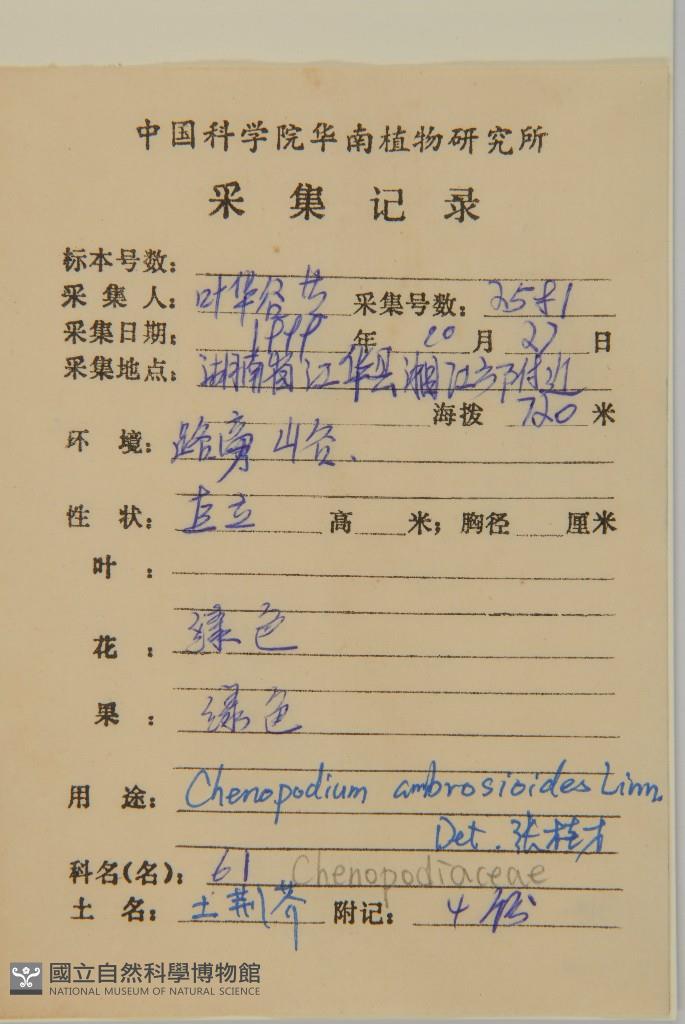 中国科学院华南植物研究所
采集记录
标本号数:
采集人: 叶华谷 采集号数: 2581
采集日期: 年 月 27 日
采集地点: 湖南省江华县湘江 附近
海拨 720 米
环境: 路旁山谷.
性状: 直立 高 米; 胸径 厘米
叶:
花: 绿色
果: 绿色
用途: Chenopodium ambrosioides Linn.
Det. 张桂才
科名(名): 61 Chenopodiaceae
土名: 土荆芥 附记: 4份
國立自然科學博物館
NATIONAL MUSEUM OF NATURAL SCIENCE